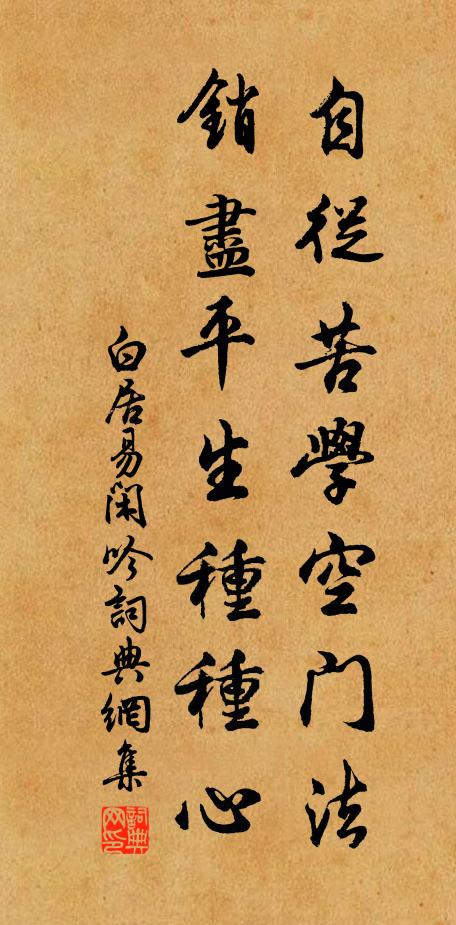 自從苦學空门法
銷盡平生種種心
白居易閑吟詞典網集
詞典网印